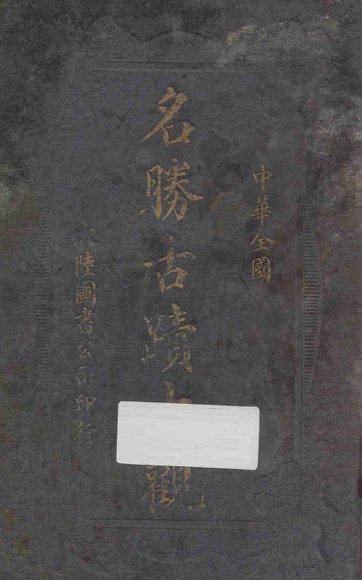 中華全國
名勝古蹟大觀
陸圖書公司印行